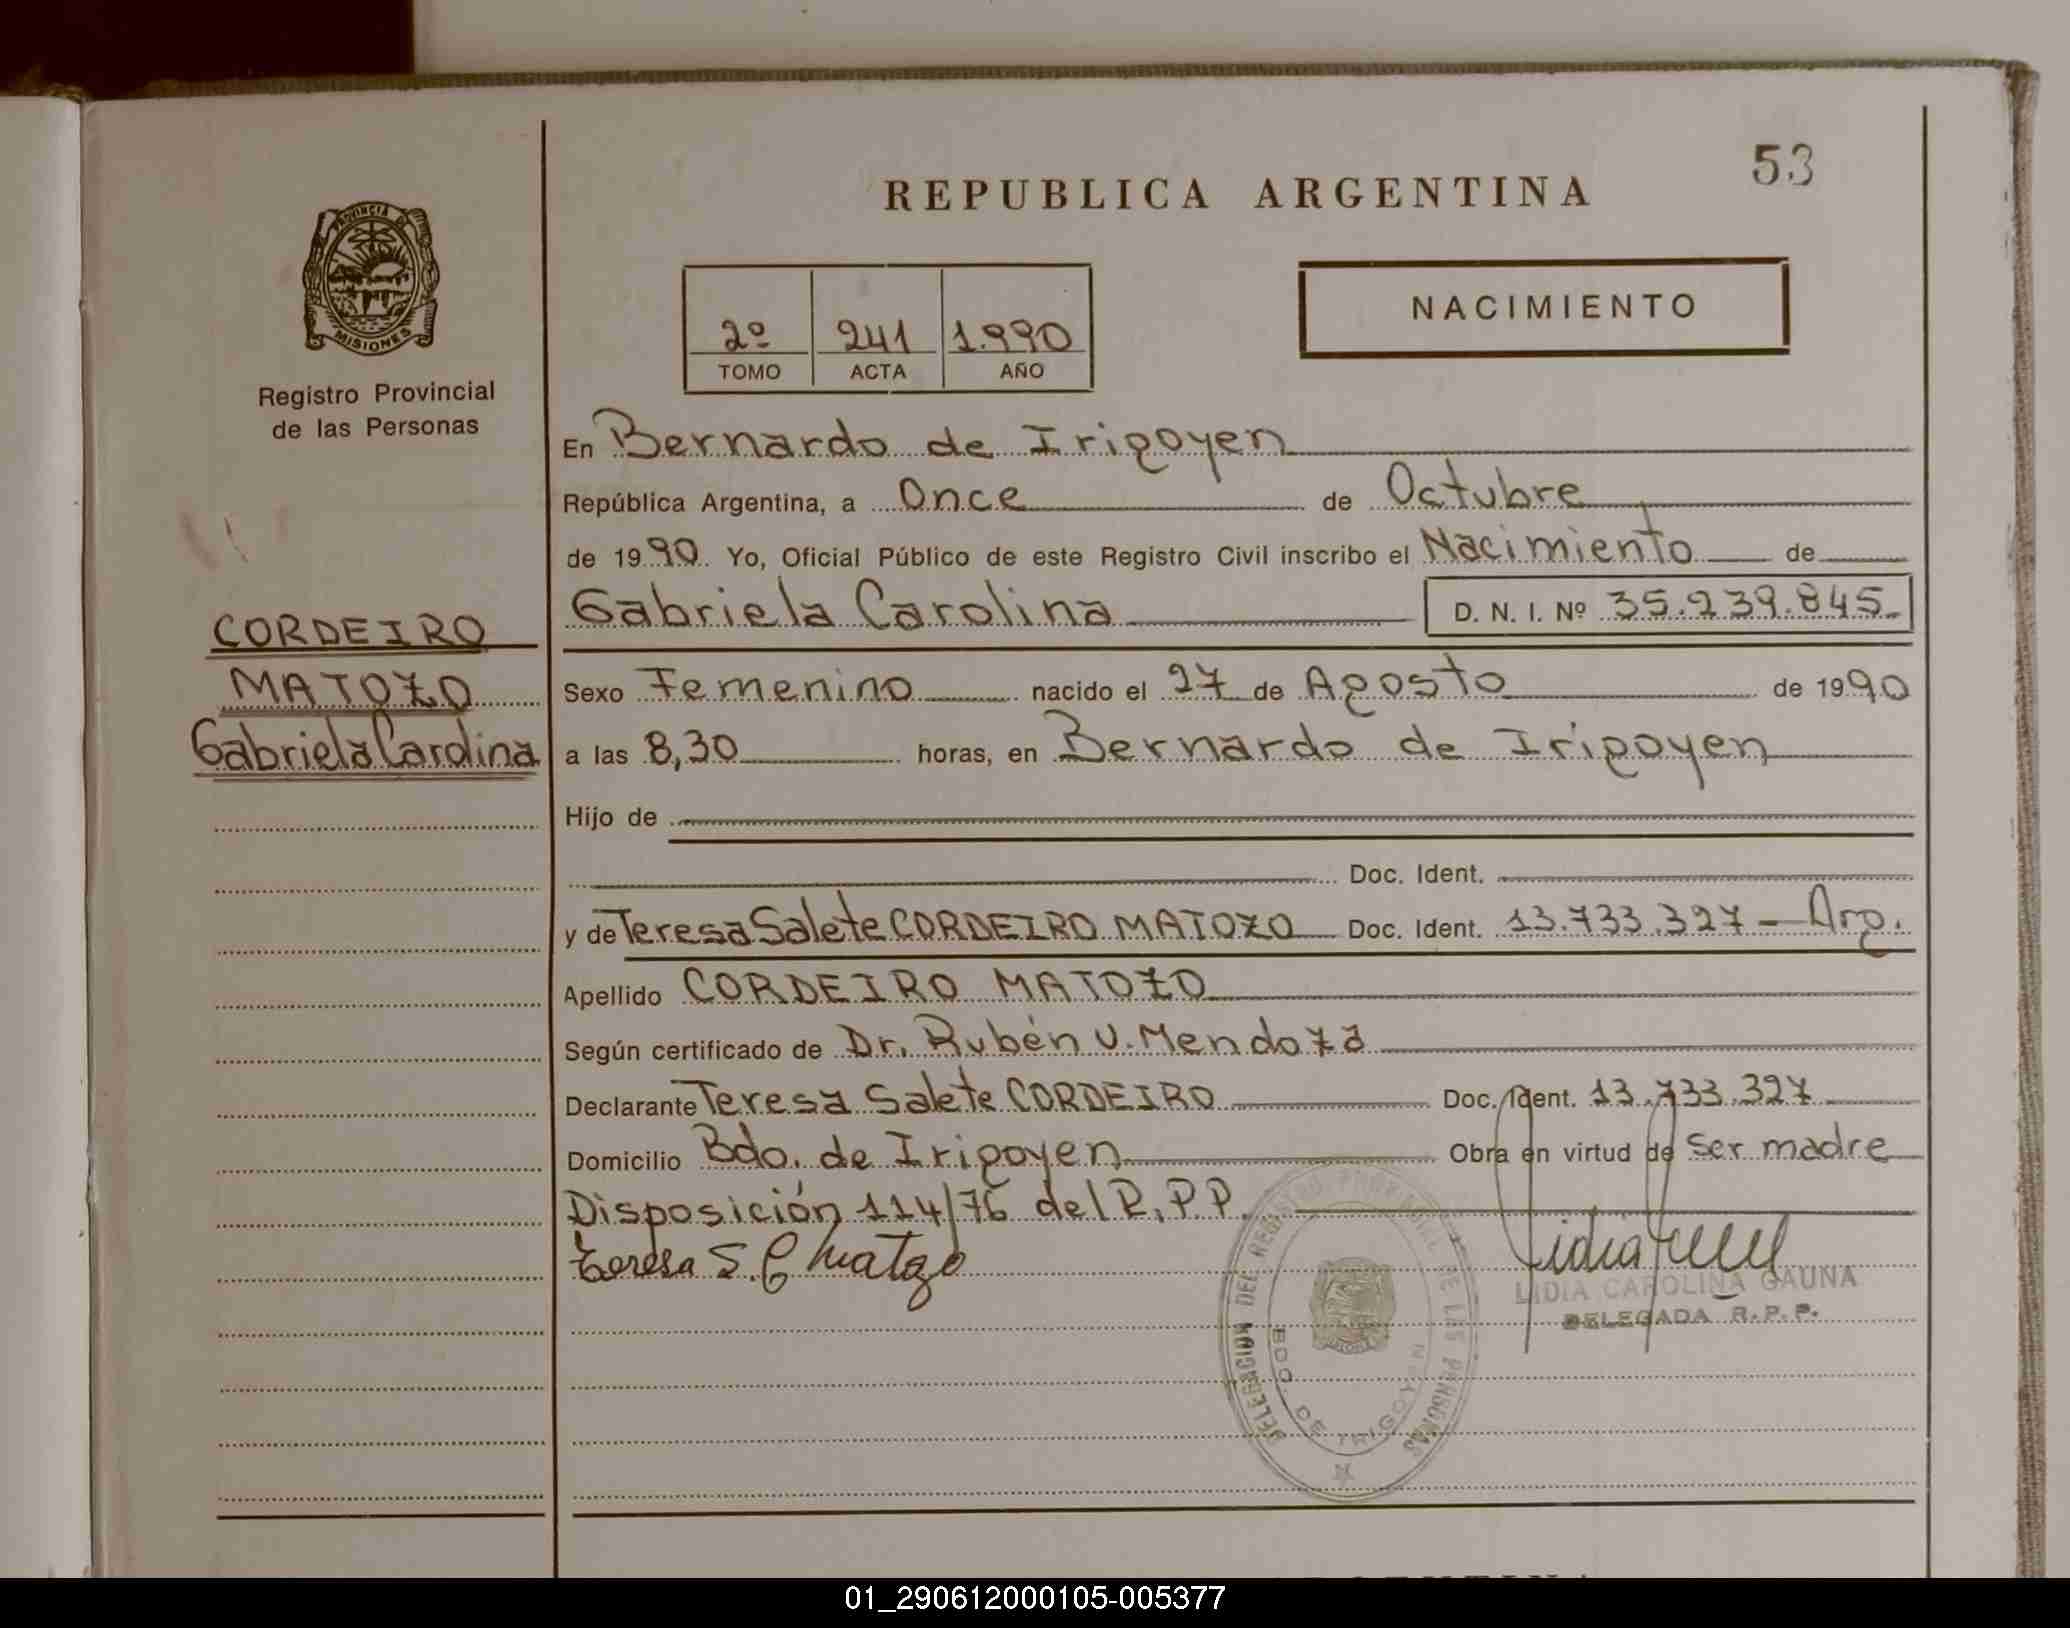 53
REPUBLICA ARGENTINA
PROVINCIA DE
MISIONES
2º 241 1.990
TOMO ACTA AÑO
NACIMIENTO
Registro Provincial
de las Personas
En Bernardo de Irigoyen
República Argentina, a Once de Octubre
de 1990. Yo, Oficial Público de este Registro Civil inscribo el Nacimiento de
Gabriela Carolina D. N. I. Nº 35.239.845
CORDEIRO
MATOZO
Gabriela Carolina
Sexo Femenino nacido el 27 de Agosto de 1990
a las 8,30 horas, en Bernardo de Irigoyen
Hijo de
Doc. Ident.
y de Teresa Salete CORDEIRO MATOZO Doc. Ident. 13.733.327 - Arg.
Apellido CORDEIRO MATOZO
Según certificado de Dr. Rubén U. Mendoza
Declarante Teresa Salete CORDEIRO Doc. Ident. 13.733.327
Domicilio Bdo. de Irigoyen Obra en virtud de ser madre
Disposición 114/76 del R.P.P.
Teresa S. C Matozo
LIDIA CAROLINA GAUNA
DELEGADA R.P.P.
DELEGACION DEL REGISTRO PROVINCIAL DE LAS PERSONAS
BDO. DE IRIGOYEN
01_290612000105-005377